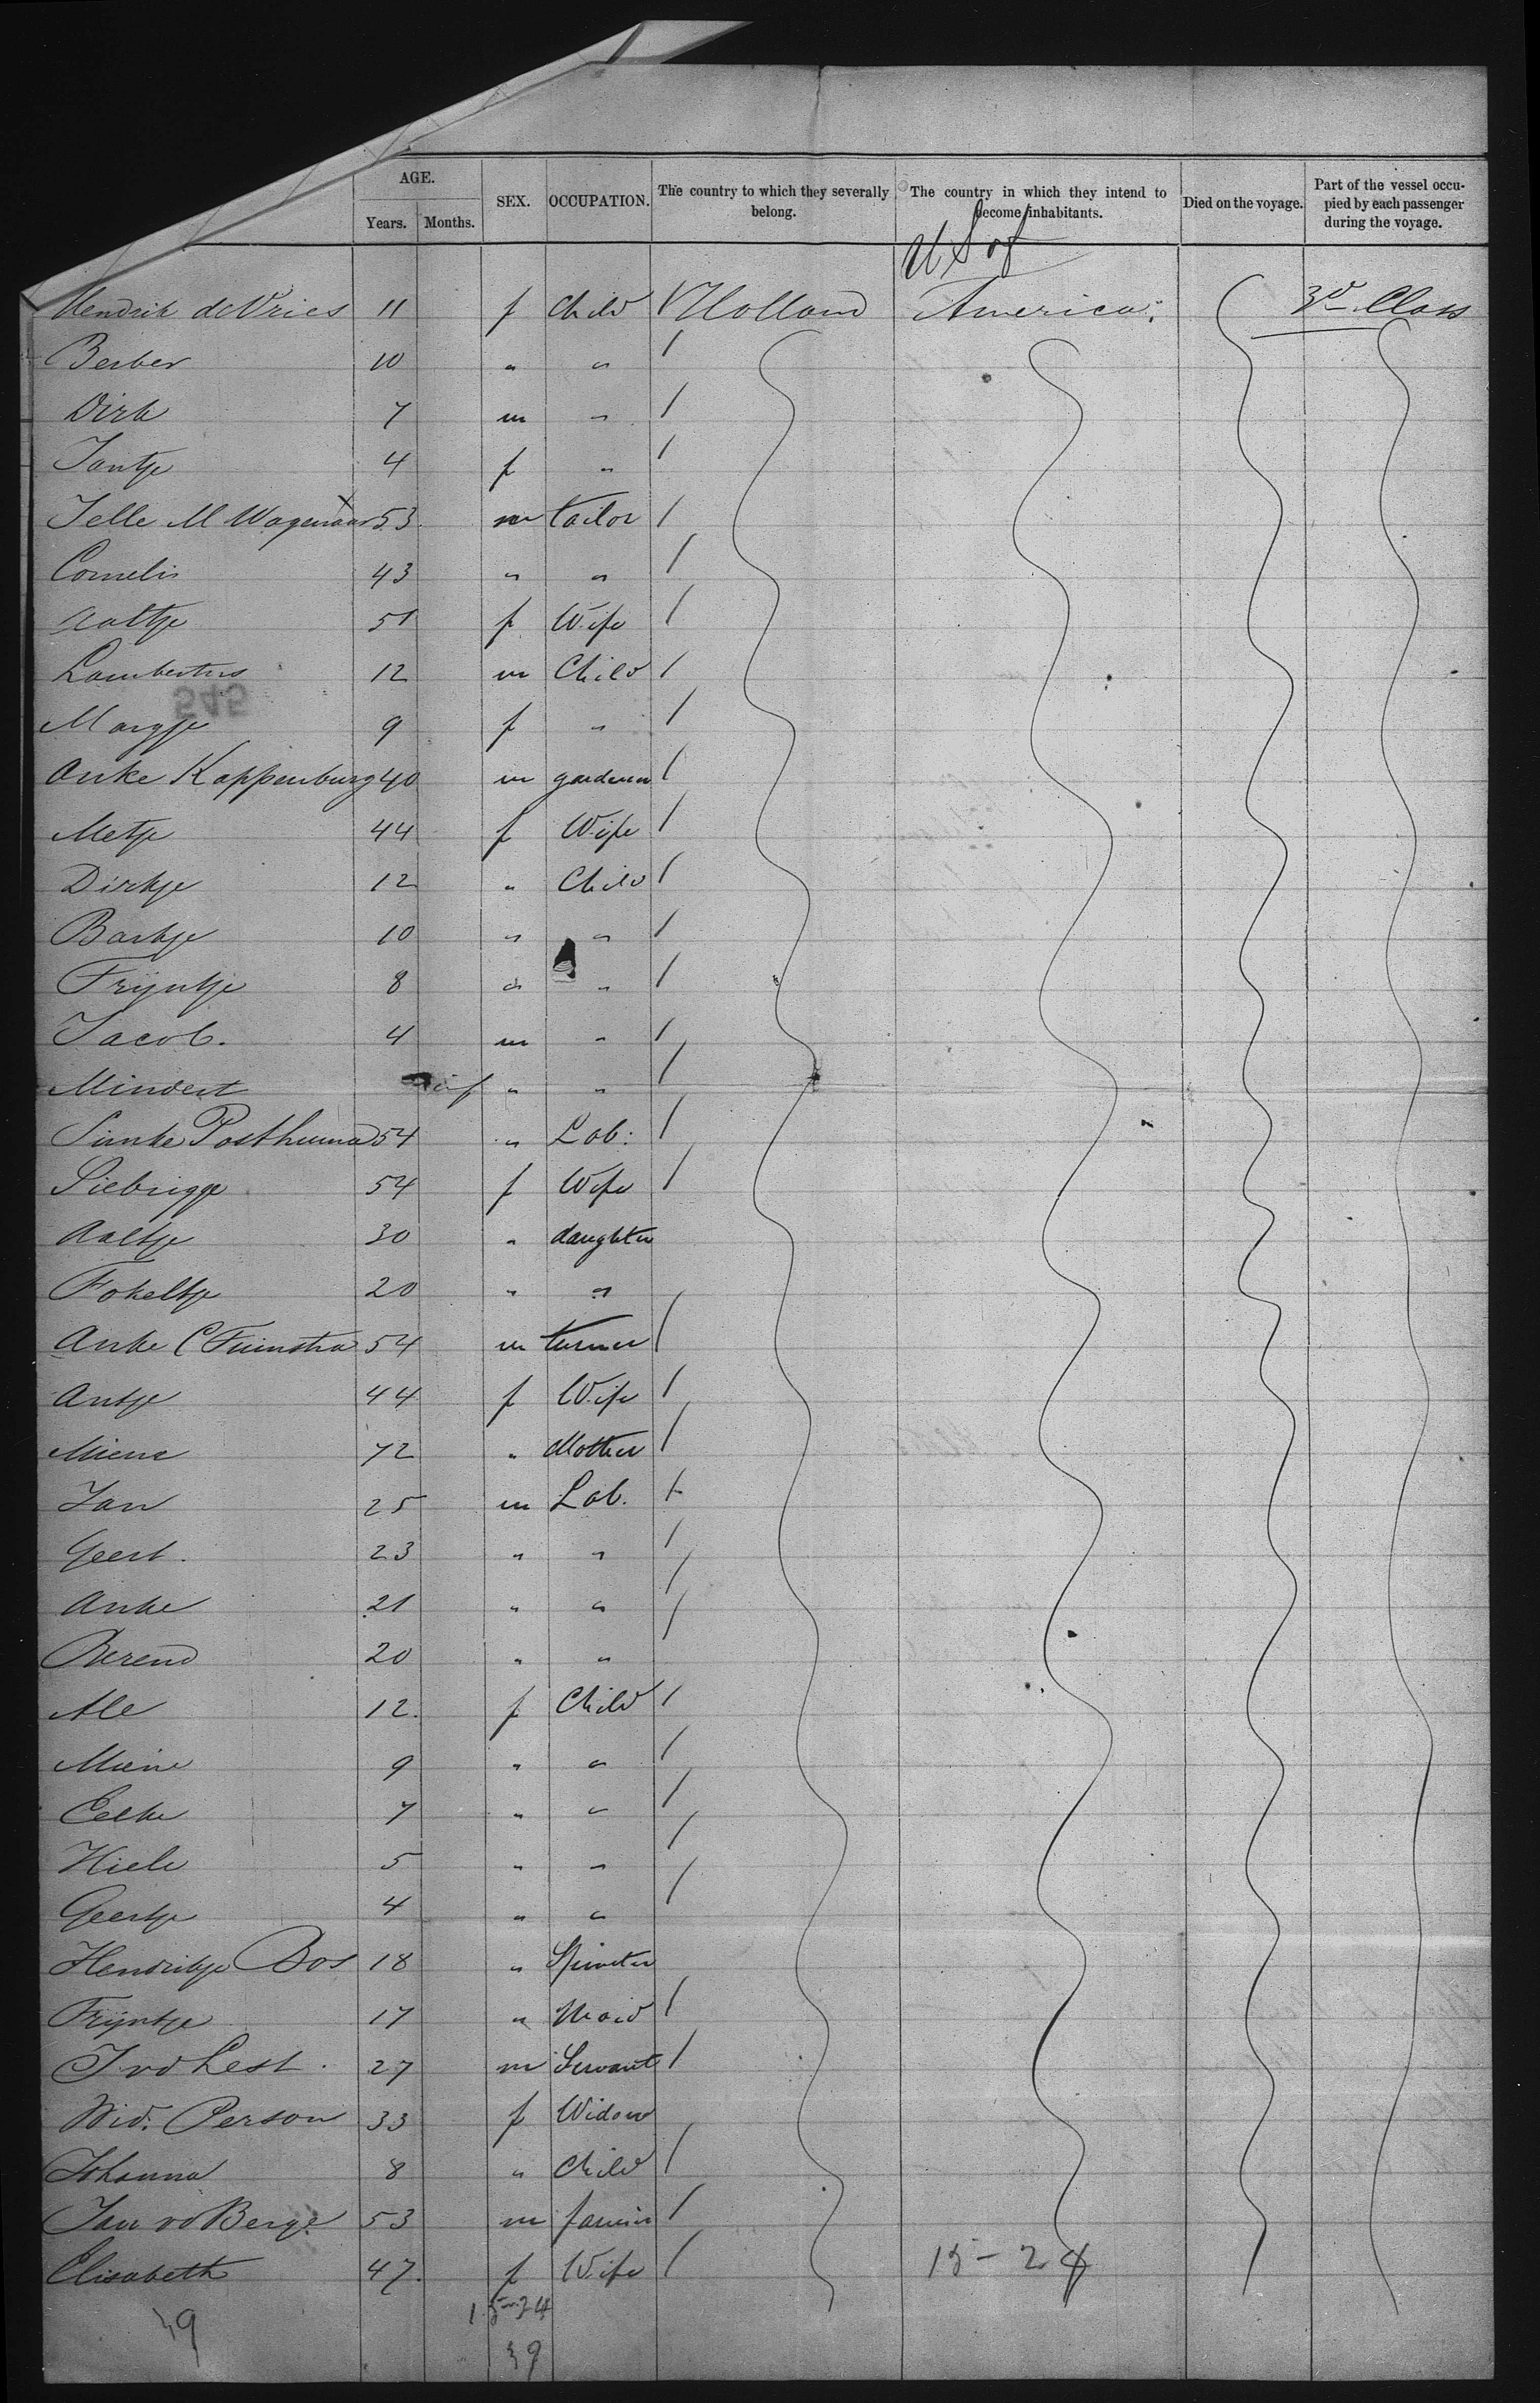 AGE. SEX. OCCUPATION. The country to which they severally belong. The country in which they intend to become inhabitants. Died on the voyage. Part of the vessel occupied by each passenger during the voyage.
Years. Months.
U S of
Hendrik de Vries 11 f Child Holland America. 3d Class
Berber 10 " "
Dirk 7 m "
Jantje 4 f "
Jelle M Wagenaar 53 m tailor
Cornelis 43 " "
Aaltje 51 f Wife
Lambertus 12 m Child
545
Margje 9 f "
Anke Kappenburg 40 m gardener
Metje 44 f Wife
Dirkje 12 " Child
Barkje 10 " "
Frijntje 8 " "
Jacob. 4 m "
Mindert inf " "
Simke Posthuma 54 " Lab:
Siebrigje 54 f Wife
Aaltje 30 " daughter
Fokeltje 20 " "
Anke C Tuinstra 54 m turner
Antje 44 f Wife
Miene 72 " Mother
Jan 25 m Lab.
Geert. 23 " "
Anke 21 " "
Berend 20 " "
Ale 12. f Child
Miene 9 " "
Eelke 7 " "
Hiele 5 " "
Geertje 4 " "
Hendrikje Bos 18 " Spinster
Frijntje 17 " Maid
J vd Lest. 27 m Servant
Wid. Person 33 f Widow
Johanna 8 " Child
Jan vd Berge 53 m farmer
Elisabeth 47. f Wife 15-24
15-24
39 39